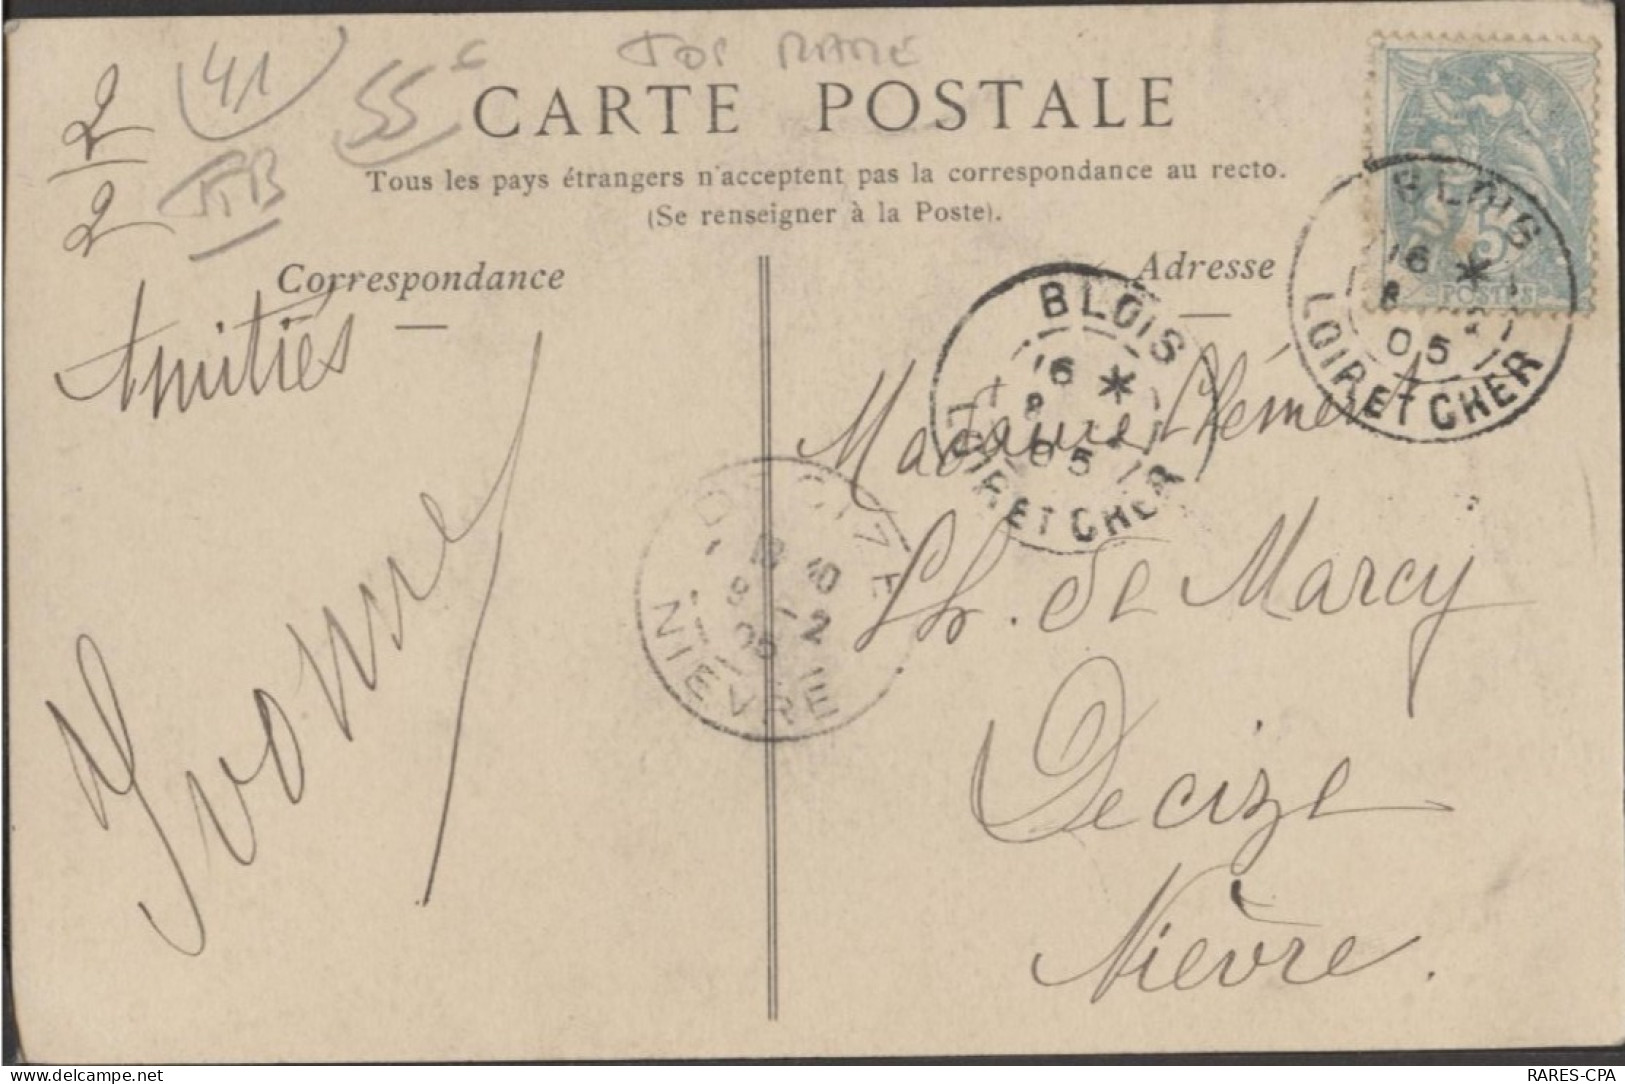 2
2
41
TTB
55 c
CARTE POSTALE
Tous les pays étrangers n'acceptent pas la correspondance au recto.
(Se renseigner à la Poste).
Correspondance
Adresse
5
POSTES
BLOIS
16 *
8
05
LOIR ET CHER
BLOIS
16 *
8
05
LOIR ET CHER
DECIZE
18 10
8 - 2
05
NIEVRE
Amitiés
Yvonne
Madame Clément
Ch. de Marcy
Decize
Nièvre.
delcampe.net
RARES-CPA